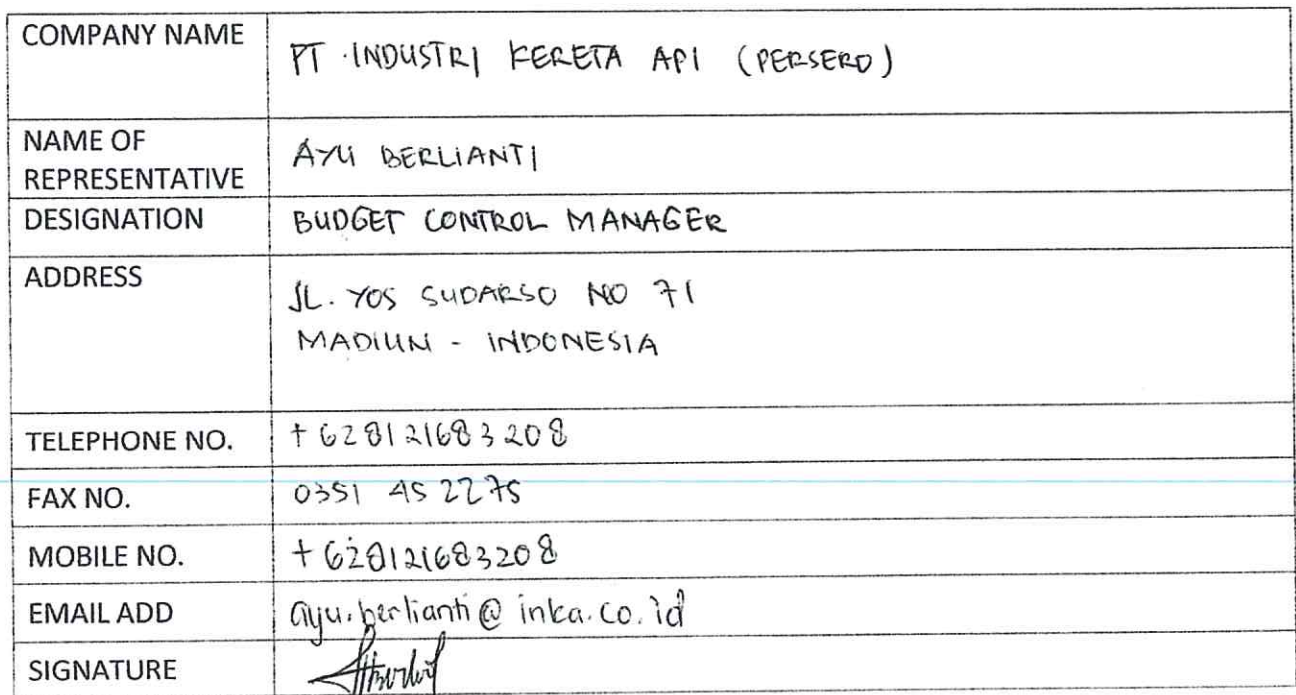 COMPANY NAME PT. INDUSTRI KERETA API (PERSERO)
NAME OF
REPRESENTATIVE AYU BERLIANTI
DESIGNATION BUDGET CONTROL MANAGER
ADDRESS
JL. YOS SUDARSO NO 71
MADIUN - INDONESIA
TELEPHONE NO. +628121683208
FAX NO. 0351 452275
MOBILE NO. +628121683208
EMAIL ADD ayu.berlianti@inka.co.id
SIGNATURE